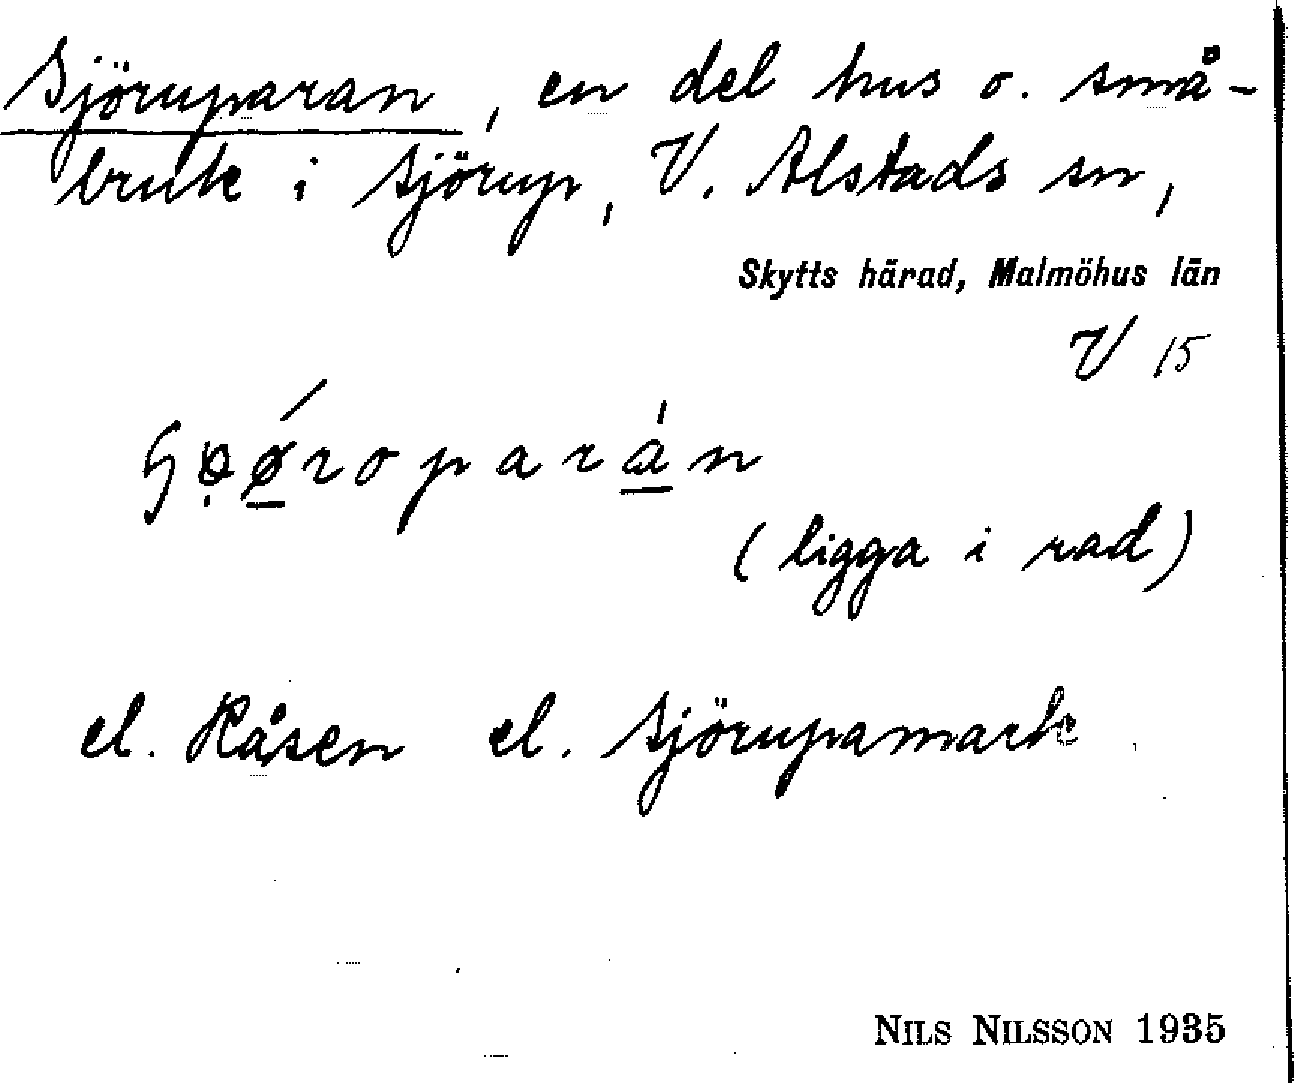 Sjöruparan, en del hus o. små-
bruk i Sjörup, V. Alstads sn,
Skytts härad, Malmöhus län
V 15
(ligga i rad)
el. Kåsen el. Sjörupamark
NILS NILSSON 1935